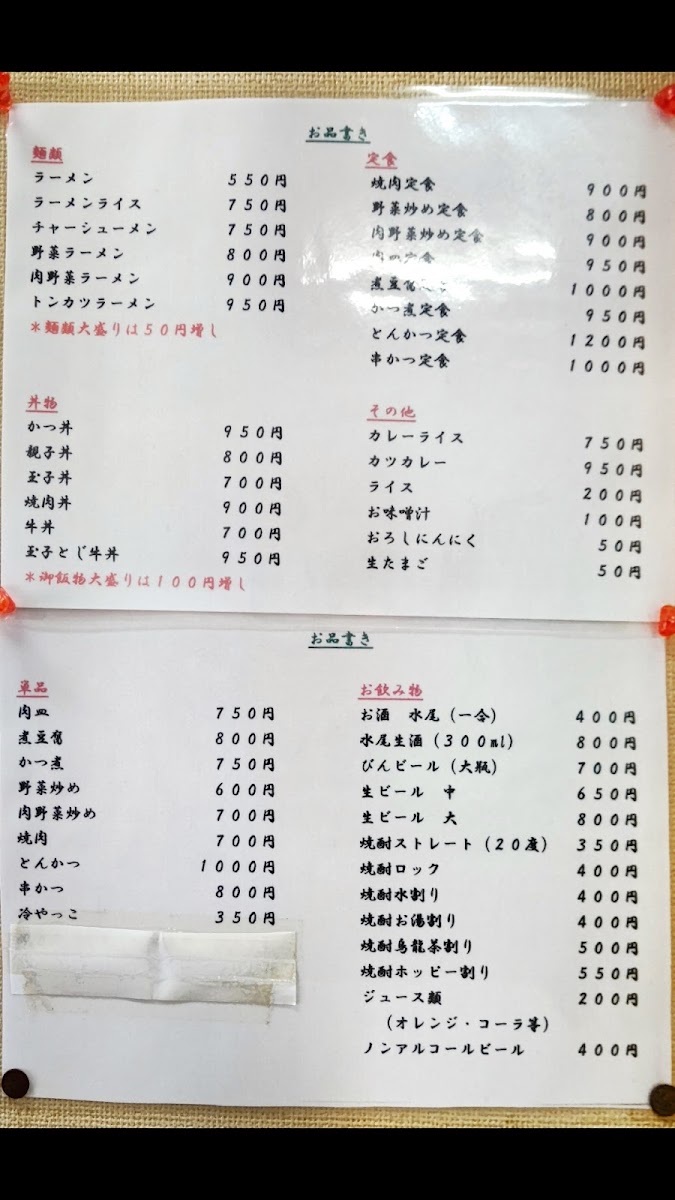 お品書き
麺類
ラーメン ５５０円
ラーメンライス ７５０円
チャーシューメン ７５０円
野菜ラーメン ８００円
肉野菜ラーメン ９００円
トンカツラーメン ９５０円
＊麺類大盛りは５０円増し
丼物
かつ丼 ９５０円
親子丼 ８００円
玉子丼 ７００円
焼肉丼 ９００円
牛丼 ７００円
玉子とじ牛丼 ９５０円
＊御飯物大盛りは１００円増し
定食
焼肉定食 ９００円
野菜炒め定食 ８００円
肉野菜炒め定食 ９００円
肉皿定食 ９５０円
煮豆腐定食 １０００円
かつ煮定食 ９５０円
とんかつ定食 １２００円
串かつ定食 １０００円
その他
カレーライス ７５０円
カツカレー ９５０円
ライス ２００円
お味噌汁 １００円
おろしにんにく ５０円
生たまご ５０円
お品書き
単品
肉皿 ７５０円
煮豆腐 ８００円
かつ煮 ７５０円
野菜炒め ６００円
肉野菜炒め ７００円
焼肉 ７００円
とんかつ １０００円
串かつ ８００円
冷やっこ ３５０円
お飲み物
お酒 水尾（一合） ４００円
水尾生酒（３００㎖） ８００円
びんビール（大瓶） ７００円
生ビール 中 ６５０円
生ビール 大 ８００円
焼酎ストレート（２０度） ３５０円
焼酎ロック ４００円
焼酎水割り ４００円
焼酎お湯割り ４００円
焼酎烏龍茶割り ５００円
焼酎ホッピー割り ５５０円
ジュース類 ２００円
（オレンジ・コーラ等）
ノンアルコールビール ４００円